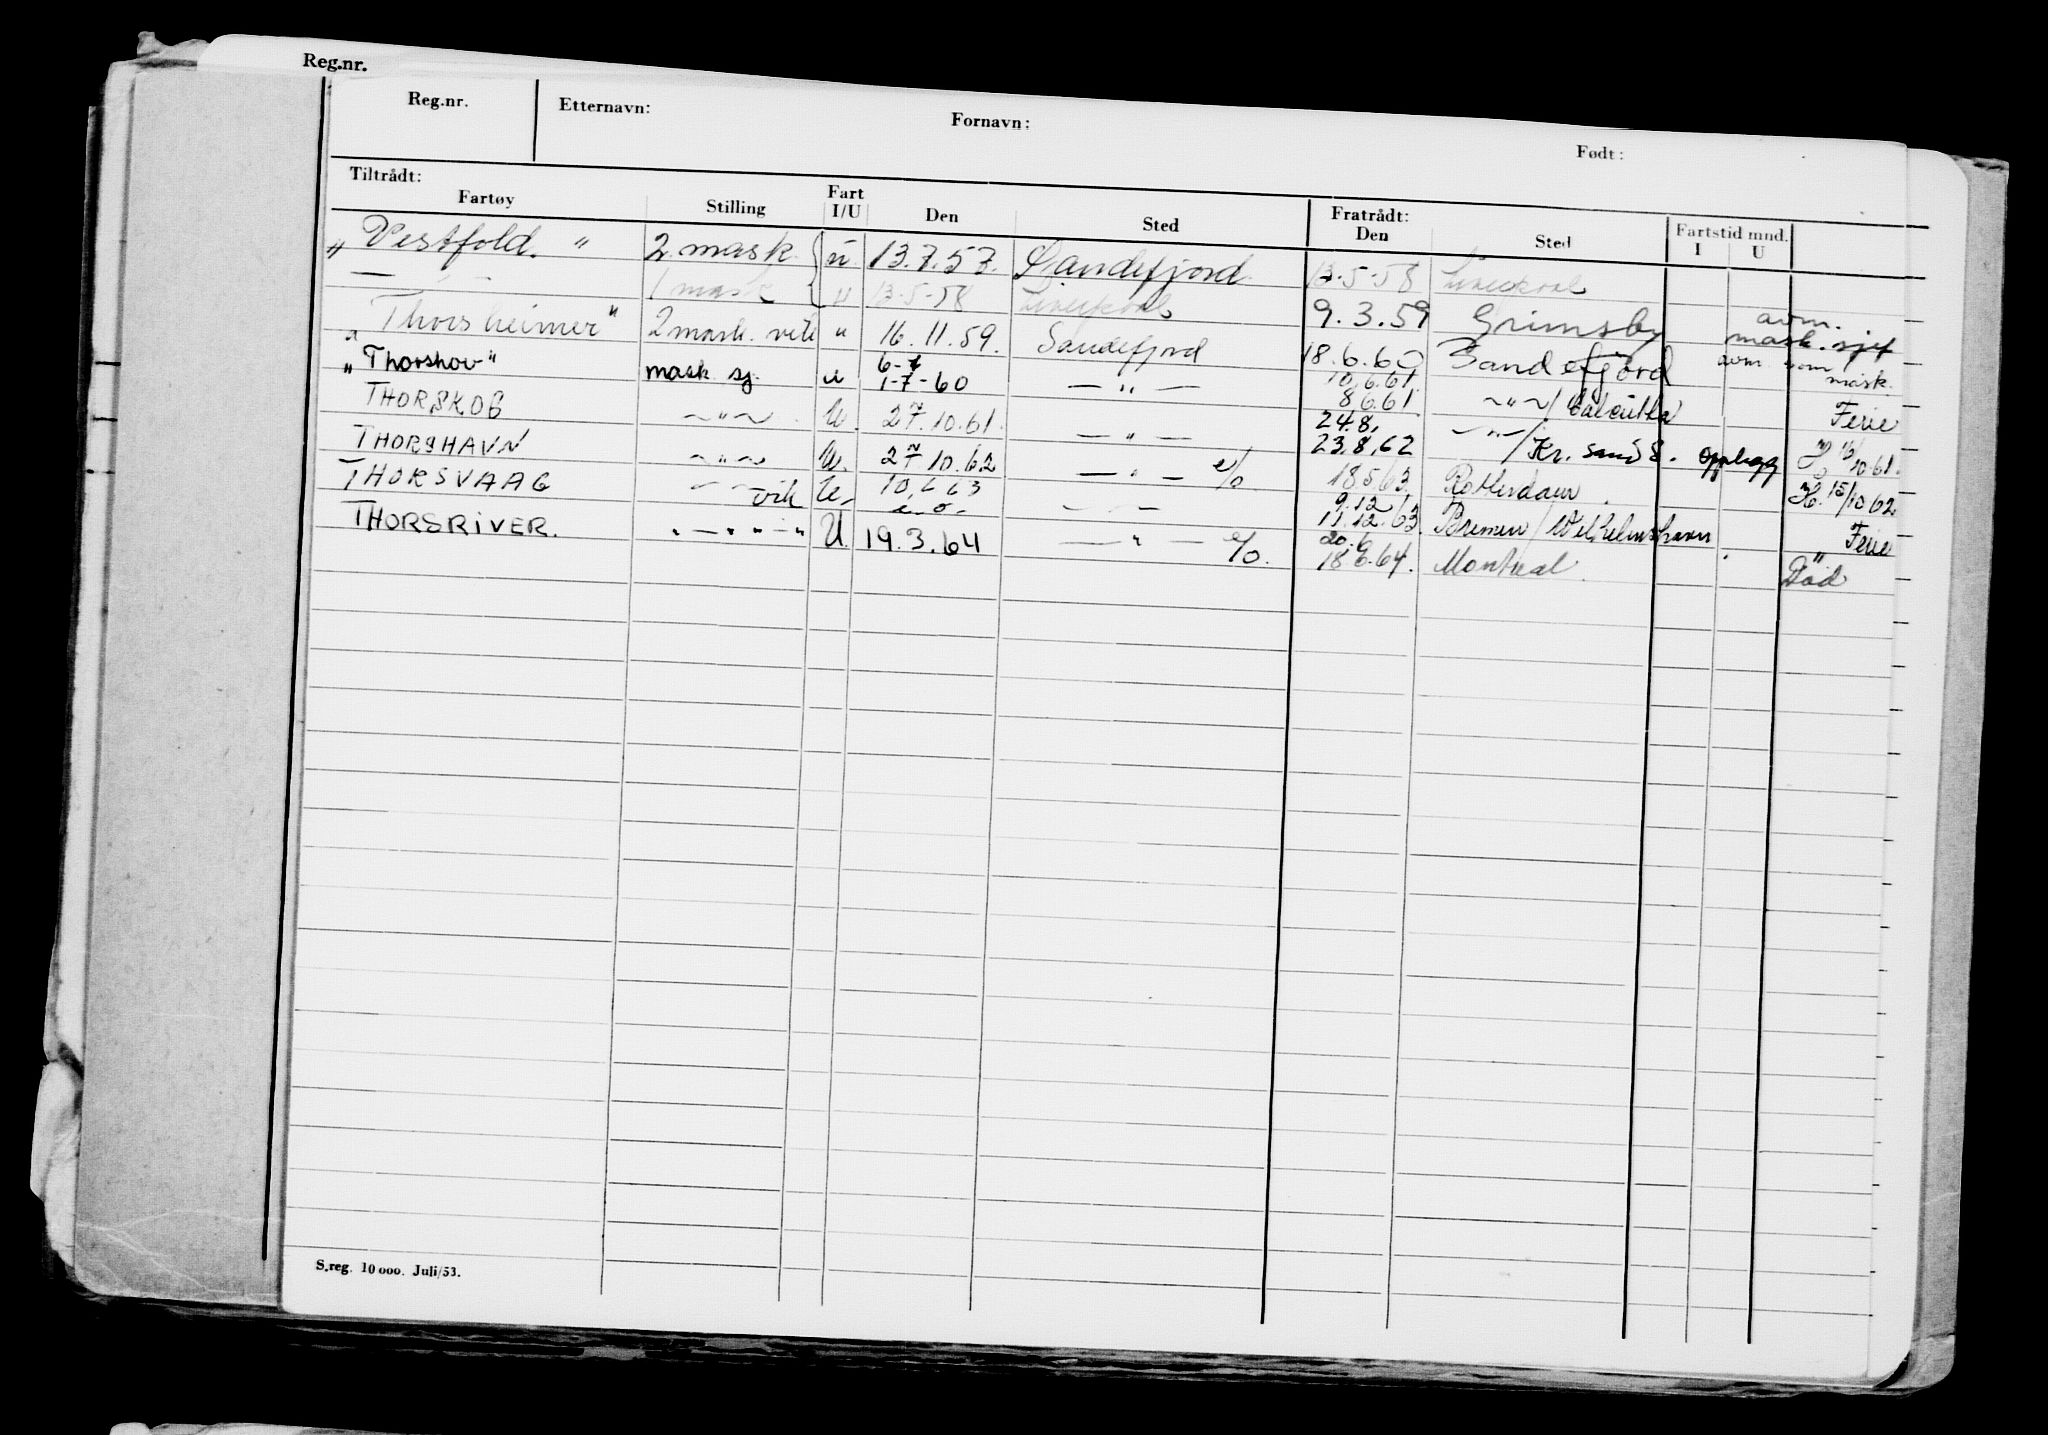 Reg.nr.
Reg.nr. Etternavn: Fornavn: Født:
Tiltrådt: Fratrådt:
Fartøy Stilling Fart I/U Den Sted Den Sted Fartstid mnd. I U
„ Vestfold. " 2. mask. u 13.7.57. Sandefjord 13-5-58 Liverpool
— " — 1 mask " 13-5-58 Liverpool 9.3.59 Grimsby avm. mask. sjef
„ Thorsheimer " 2 mask. vik " 16.11.59. Sandefjord 18.6.60 Sandefjord avm. som mask.
„ Thorshov " mask sj. u 6-7 1-7-60 — " — 10.6.61 8.6.61 ~ " ~ / Calcutta Ferie
THORSKOG ~ " ~ U. 27.10.61. — " — 24.8. 23.8.62 — " — / Kr. sand S. Opplagg 16/10.61.
THORSHAVN ~ " ~ U. 27 10.62 — " — e/o 18.5.63. Rotterdam. 15/10 62
THORSVAAG — " — vik U. 10.6.63 e.o. — " — 9.12 11.12.63. Bremen / Wilhelmshavn Ferie
THORSRIVER. " — " — " U. 19.3.64 — " — e/o. 20.6 18.6.64. Montreal. " Död
S.reg. 10 000. Juli/53.